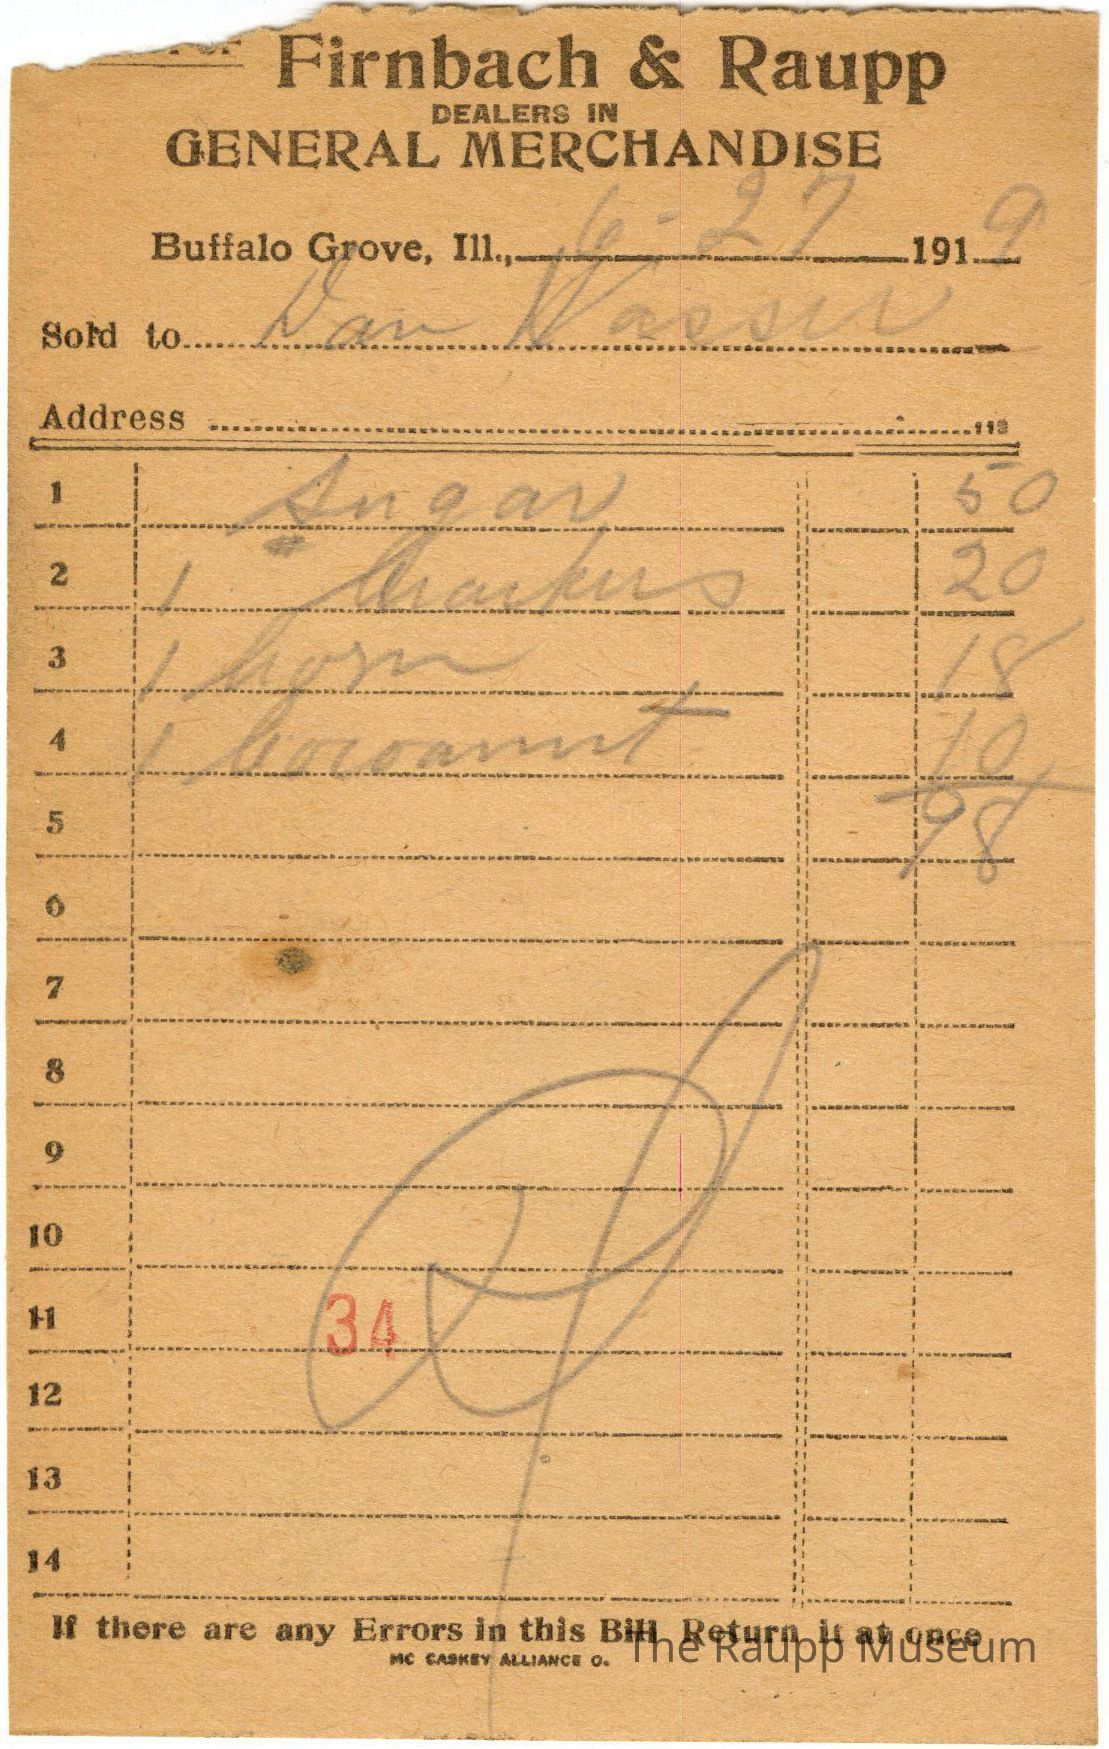 Firnbach & Raupp
DEALERS IN
GENERAL MERCHANDISE
Buffalo Grove, Ill., 6-27 1919
Sold to Dan Wasser
Address
113
1 Sugar 50
2 1 Crackers 20
3 1 Corn 18
4 1 Cocoanut 10
5 98
6
7
8
9
10
11 34
12
13
14
If there are any Errors in this Bill Return it at once
MC CASKEY ALLIANCE O.
The Raupp Museum